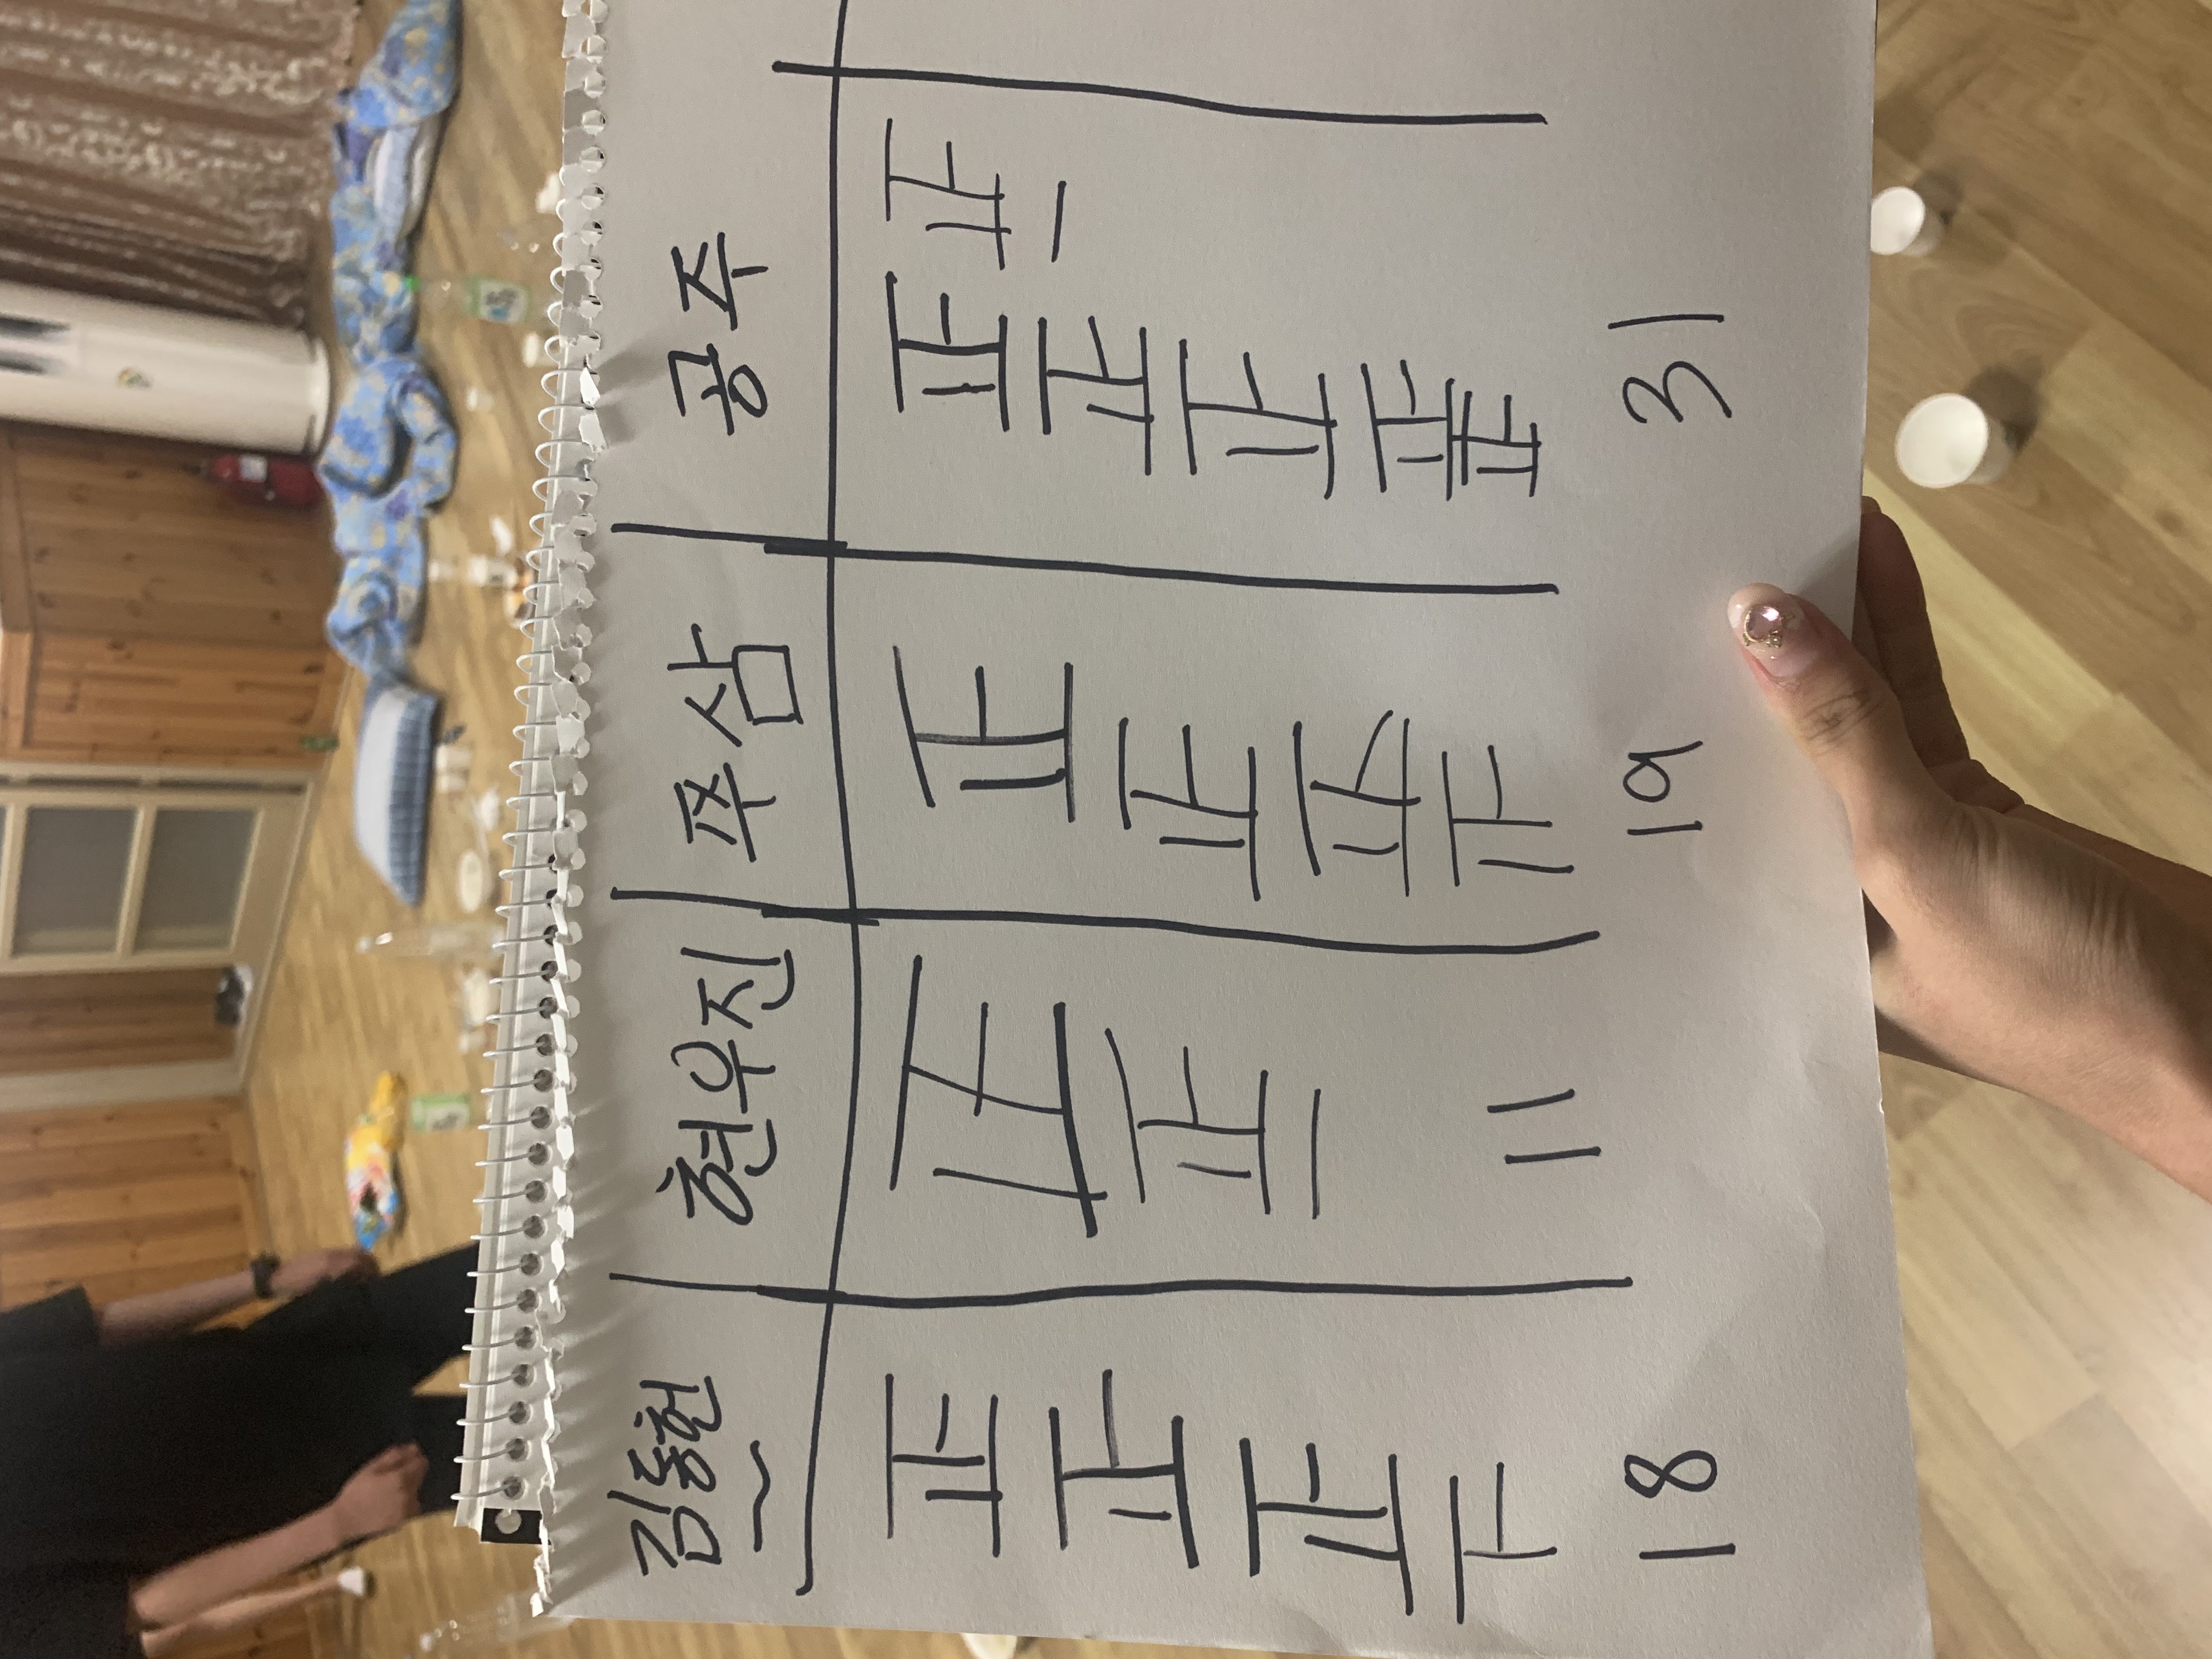 김동헌 현우진 쭈삼 공주
正 正 正 正 正
正 正 正 正
正 一 正 正
下 正 正
正
一
18 11 19 31